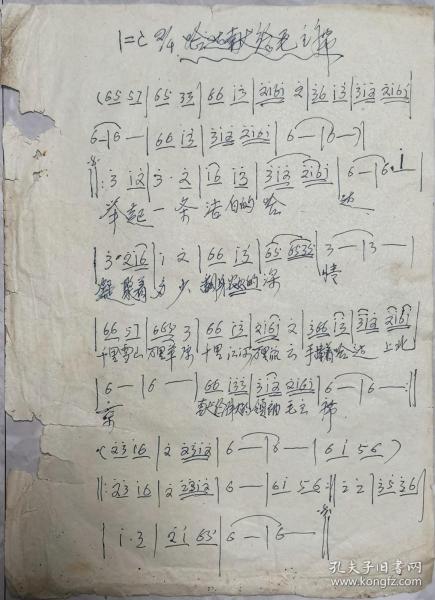 1=C 2/4 哈达献给毛主席
(65 57 | 65 33 | 66 i3 | 2i6i 2 | 36 i3 | 3i2 2i6i |
6— | 6— | 66 i3 | 3i2 2i6i | 6— | 6—)
‖: 3 i2 | 3· 2 | i6 i3 | 3i2 2i6i | 6— | 6· i
举起一条洁白的哈达
| 3· 2i6 | i 2 | 66 i3 | 65 6535 | 3— | 3— |
凝聚着多少 的深情
| 66 57 | 665 3 | 66 i3 | 2i6i 2 | 366 i3 | 3i2 2i6i |
十里雪山 万里草原 十里江河 万里 云 手捧着哈达 上北
| 6— | 6— | 66 i33 | 3i2 2i6i | 6— | 6— :‖
京 献给 的领袖毛主席
(23 i6 | 2 23i2 | 6— | 6— | 6i 56)
‖: 23 i6 | 2 23i2 | 6— | 6i 56 :‖ 22 | 35 36 |
| i·3 | 2i 65 | 6— | 6— ‖
孔夫子旧书网
www.kongfz.com